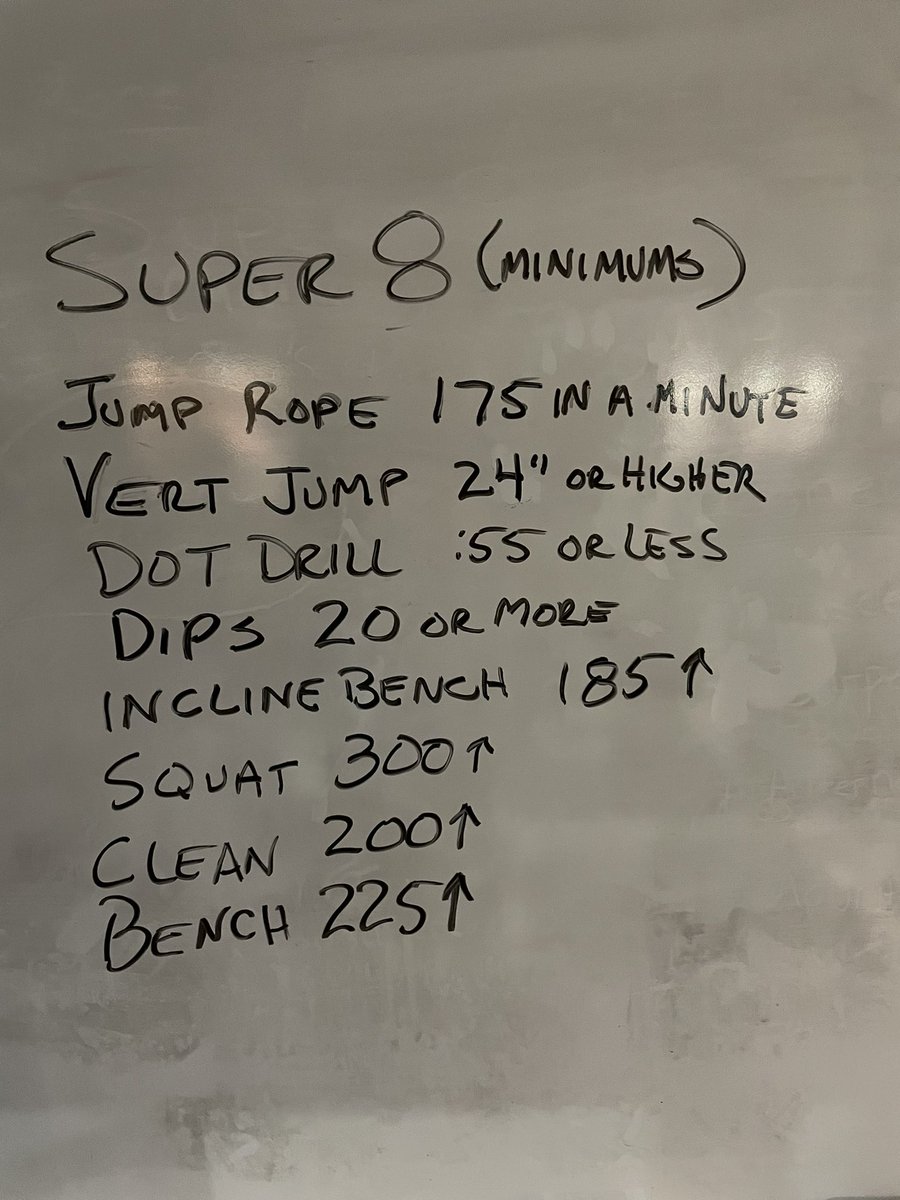 SUPER 8 (MINIMUMS)
JUMP ROPE 175 IN A MINUTE
VERT JUMP 24" OR HIGHER
DOT DRILL :55 OR LESS
DIPS 20 OR MORE
INCLINE BENCH 185↑
SQUAT 300↑
CLEAN 200↑
BENCH 225↑